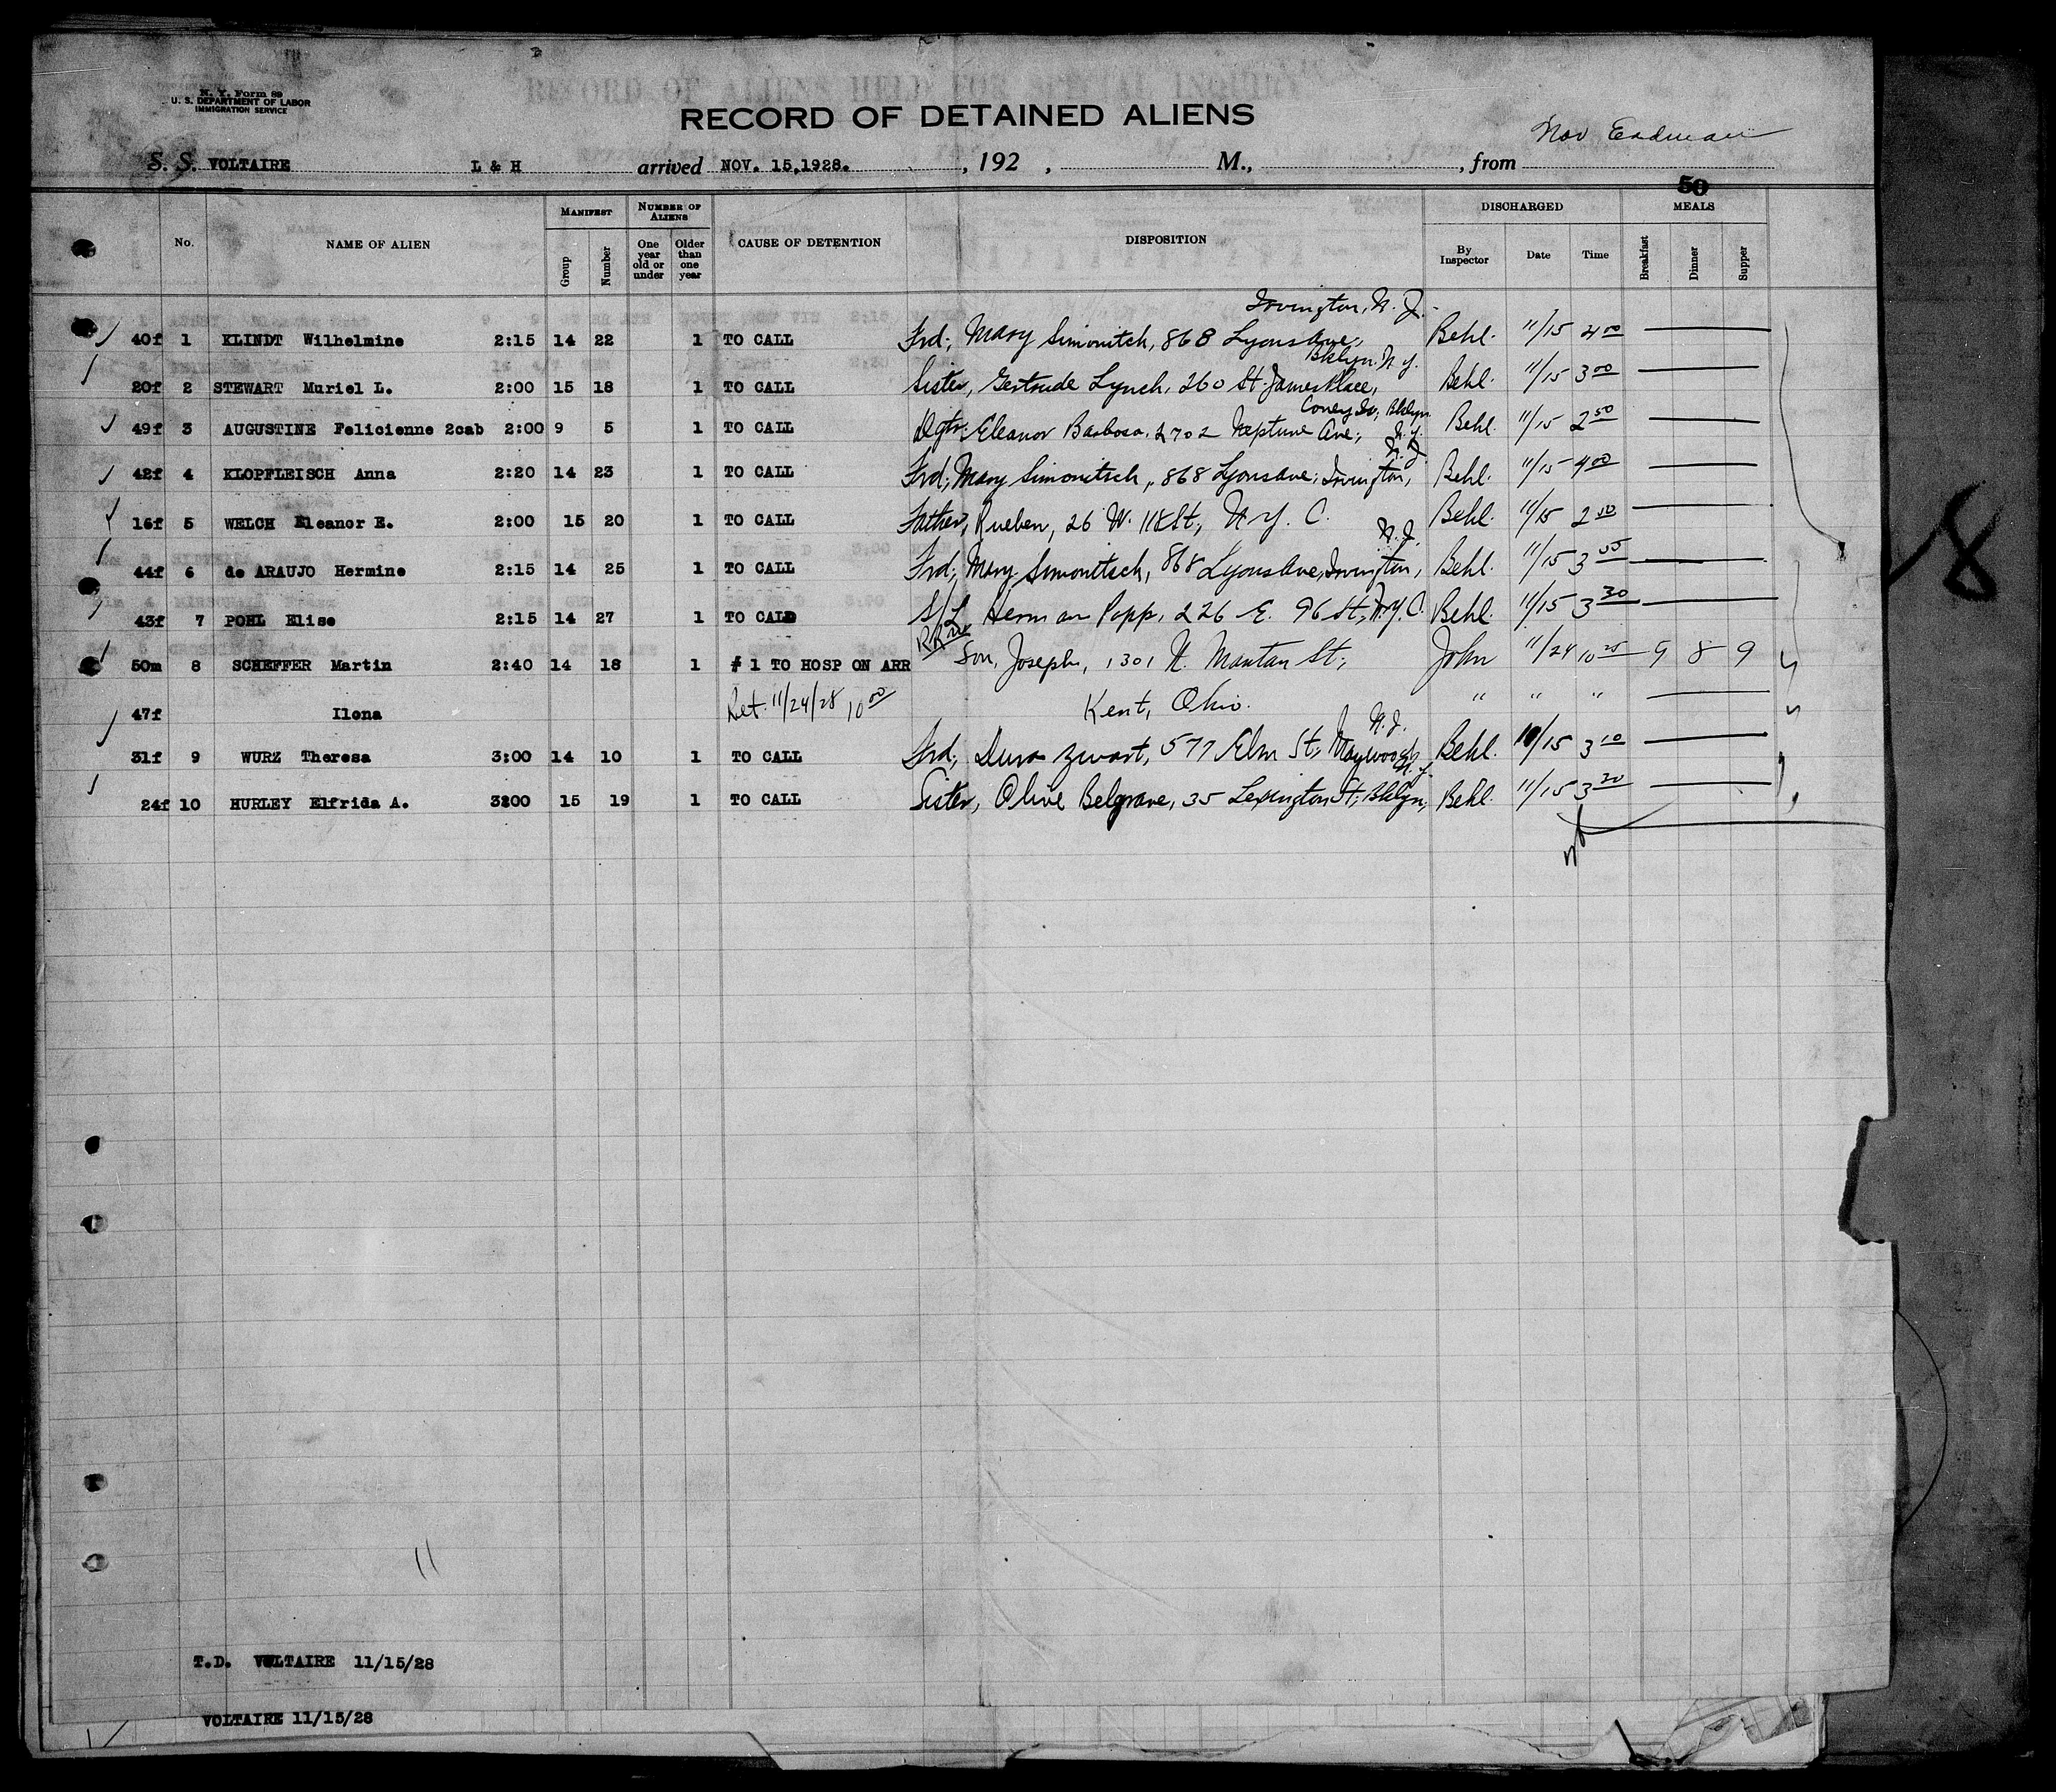 N. Y. Form 89
U. S. DEPARTMENT OF LABOR
IMMIGRATION SERVICE
RECORD OF ALIENS HELD FOR SPECIAL INQUIRY
RECORD OF DETAINED ALIENS
S. S. VOLTAIRE L & H arrived NOV. 15,1928. , 192 , M., , from
50
MANIFEST NUMBER OF ALIENS DISCHARGED MEALS
No. NAME OF ALIEN Group Number One year old or under Older than one year CAUSE OF DETENTION DISPOSITION By Inspector Date Time Breakfast Dinner Supper
Irvington, N. J.
40f 1 KLINDT Wilhelmine 2:15 14 22 1 TO CALL Frd; Mary Simonitch, 868 Lyons Ave; Behl. 11/15 4 00
Bklyn. N. Y.
20f 2 STEWART Muriel L. 2:00 15 18 1 TO CALL Sister, Gertrude Lynch, 260 St. James Place, Behl. 11/15 3 00
Coney Is, Bklyn.
49f 3 AUGUSTINE Felicienne 2cab 2:00 9 5 1 TO CALL Dgtr: Eleanor Barbosa, 2702 Neptune Ave; N.Y. Behl. 11/15 2 50
N.J.
42f 4 KLOPFLEISCH Anna 2:20 14 23 1 TO CALL Frd; Mary Simonitsch, 868 Lyons Ave; Irvington, Behl. 11/15 4 00
16f 5 WELCH Eleanor E. 2:00 15 20 1 TO CALL Father, Rueben, 26 W. 118 St, N.Y. C. Behl. 11/15 2 50
N.J.
44f 6 de ARAUJO Hermine 2:15 14 25 1 TO CALL Frd; Mary Simonitsch, 868 Lyons Ave, Irvington, Behl. 11/15 3 55
43f 7 POHL Elise 2:15 14 27 1 TO CALD S/L Herman Popp, 226 E. 96 St, N.Y.C. Behl. 11/15 3 30
50m 8 SCHEFFER Martin 2:40 14 18 1 # 1 TO HOSP ON ARR Son, Joseph, 1301 N. Mantan St; John 11/24 10 25 9 8 9
47f Ilona Ret. 11/24/28 10 00 Kent, Ohio. " " "
N.J.
31f 9 WURZ Theresa 3:00 14 10 1 TO CALL Frd; Zwart, 577 Elm St, Maywood, Behl. 11/15 3 10
N.Y.
24f 10 HURLEY Elfrida A. 3200 15 19 1 TO CALL Sister, Olive Belgrave, 35 Lexington St; Bklyn, Behl. 11/15 3 20
8
T.D. VOLTAIRE 11/15/28
VOLTAIRE 11/15/28